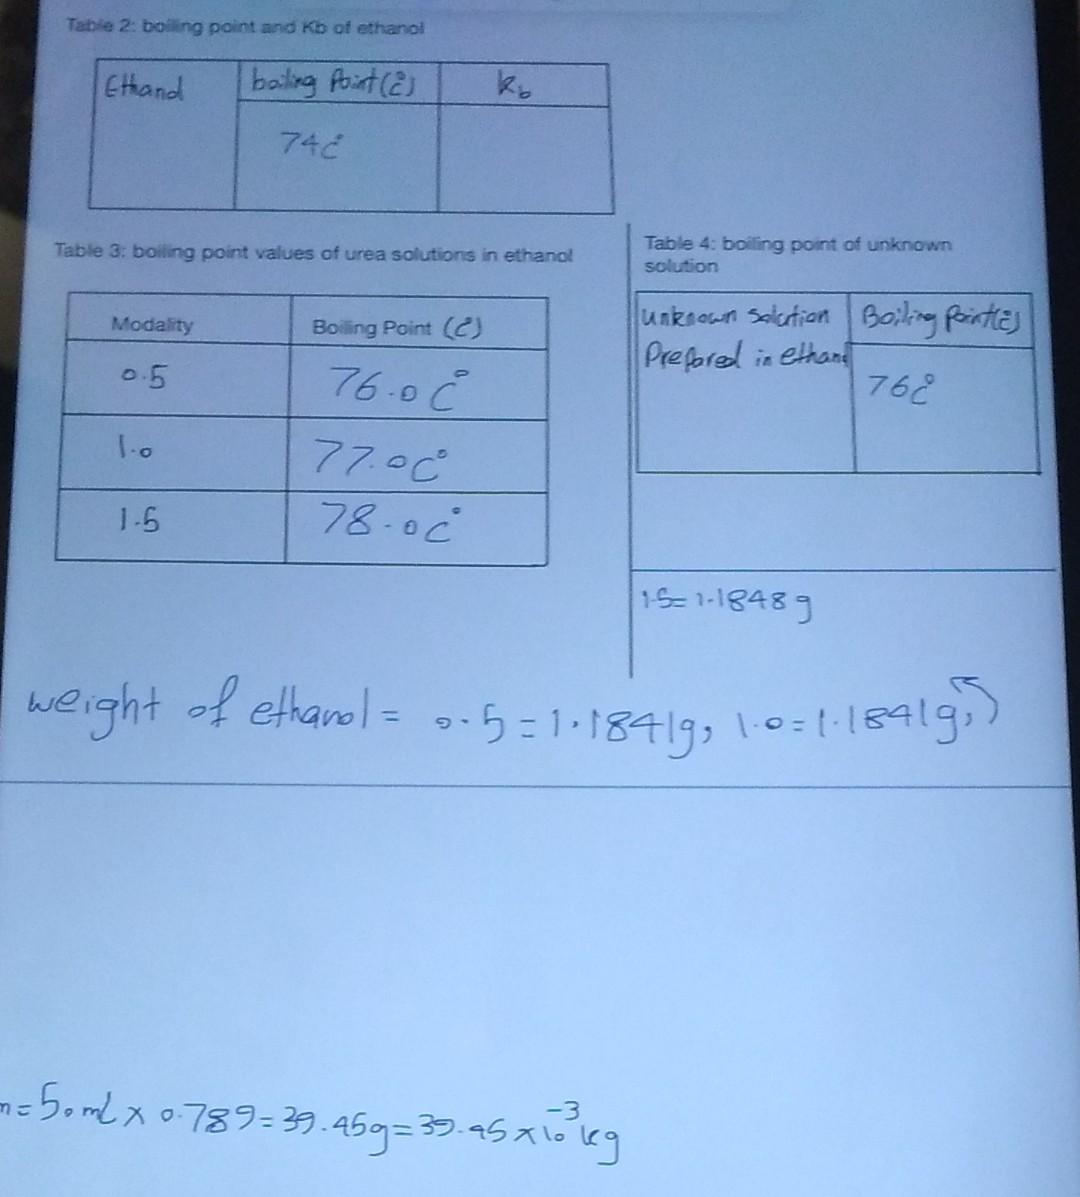 Table 2: boiling point and Kb of ethanol
Ethanol
boiling Point (C°)
Kb
74C°
Table 3: boiling point values of urea solutions in ethanol
Modality
Boiling Point (C°)
0.5
76.0C°
1.0
77.0C°
1.5
78.0C°
Table 4: boiling point of unknown
solution
Unknown solution
Prepared in ethanol
Boiling Point(C°)
76C°
1.5=1.1848g
weight of ethanol = 0.5=1.1841g, 1.0=1.1841g,
m=50mL x 0.789=39.45g=39.45x10⁻³kg